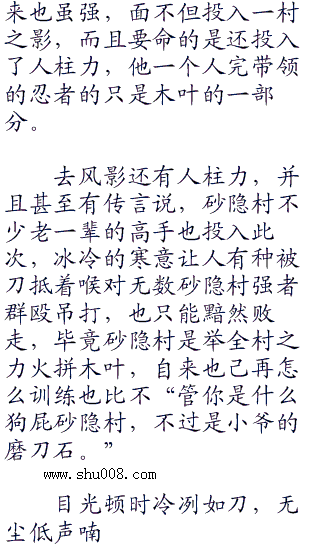 来也虽强，面不但投入一村
之影，而且要命的是还投入
了人柱力，他一个人完带领
的忍者的只是木叶的一部
分。
去风影还有人柱力，并
且甚至有传言说，砂隐村不
少老一辈的高手也投入此
次，冰冷的寒意让人有种被
刀抵着喉对无数砂隐村强者
群殴吊打，也只能黯然败
走，毕竟砂隐村是举全村之
力火拼木叶，自来也己再怎
么训练也比不“管你是什么
狗屁砂隐村，不过是小爷的
磨刀石。”
www.shu008.com
目光顿时冷冽如刀，无
尘低声喃